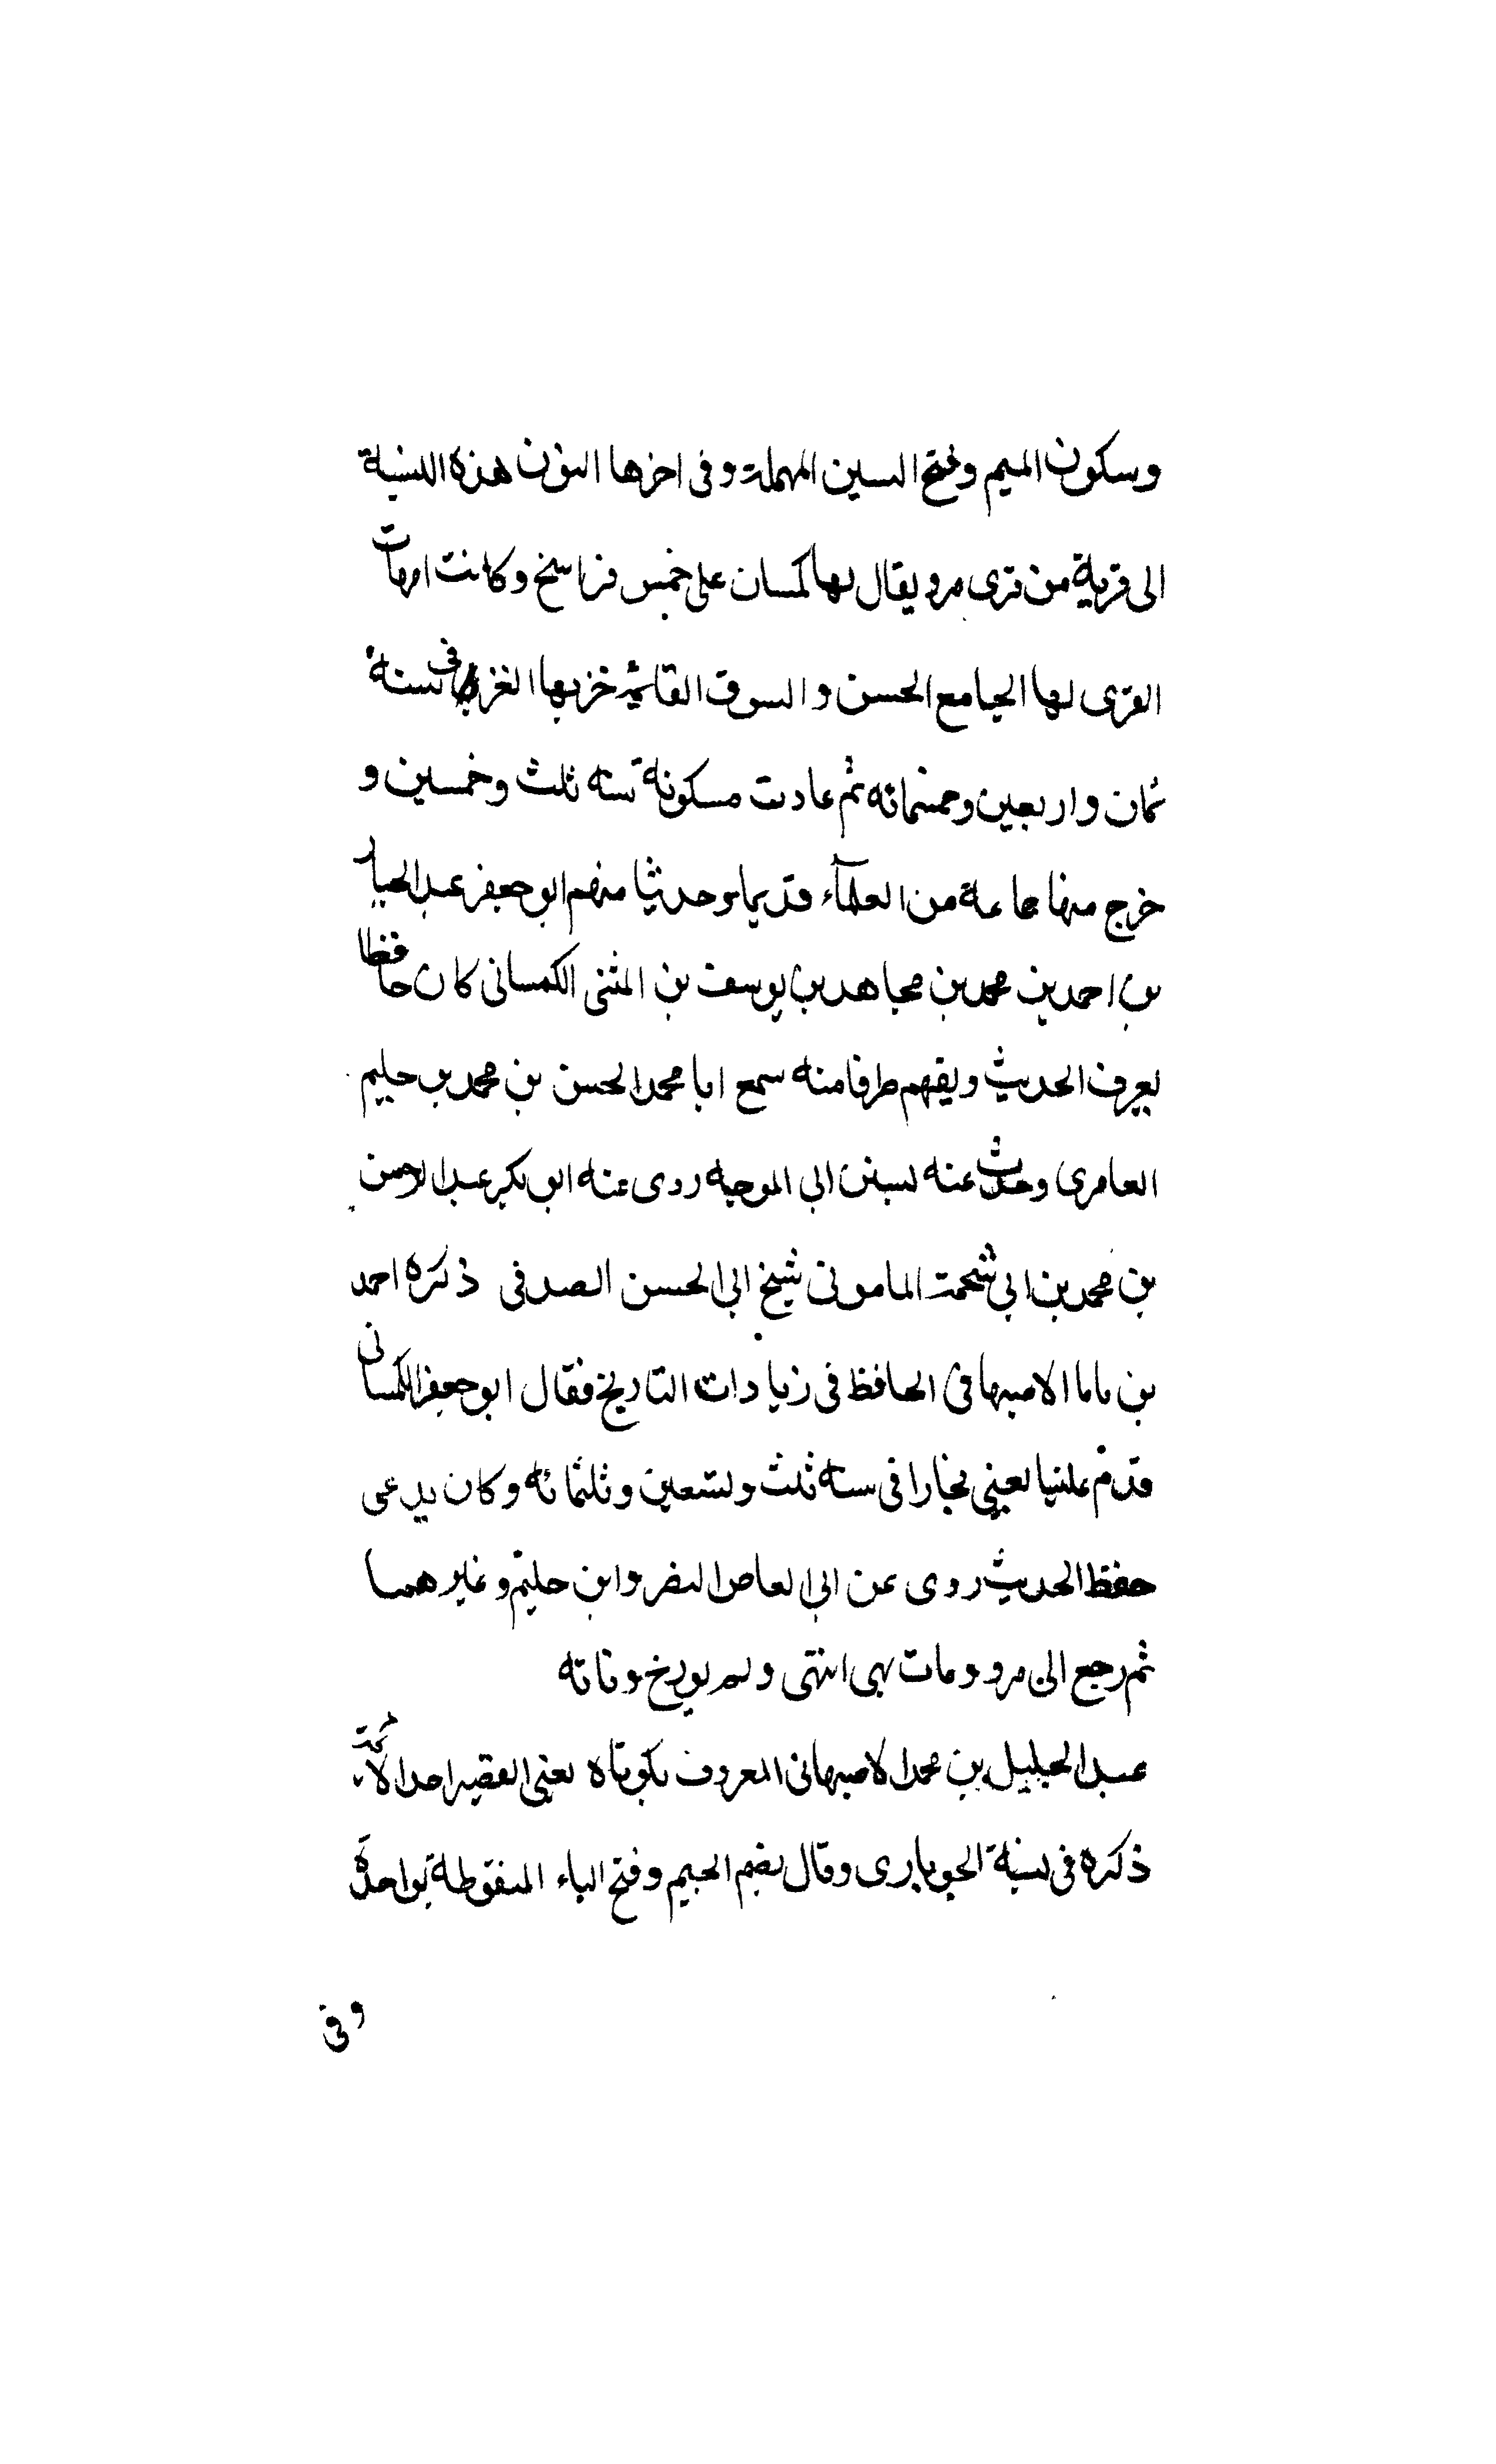 وسكون الميم وفتح السين المهملة وفى اخرها النون هذه النسبة
الى قرية من قرى مرو يقال لها كمسان على خمس فراسخ وكانت امهات
القرى لها الجامع الحسن والسوق القائمة خربها الغز فى سنة
ثمان واربعين وخمسمائه ثم عادت مسكونة سنه ثلث وخمسين و
خرج منها جماعة من العلمآء قديما وحديثا منهم ابو جعفر عبد الجبار
بن احمد بن محمد بن مجاهد بن يوسف بن المثنى الكمسانى كان حافظا
يعرف الحديث ويفهم طرفا منه سمع ابا محمد الحسن بن محمد بن حليم
العامرى وحدث عنه لسنن ابى الموجه روى عنه ابو بكر عبد الرحمن
بن محمد بن ابى شحمة المامونى شيخ ابى الحسن الصدفى ذكره احمد
بن ماما الاصبهانى الحافظ فى زيادات التاريخ فقال ابو جعفر الكمسانى
قدم علينا يعنى بخارا فى سنة ثلث وتسعين وثلثمائه وكان يدعى
حفظ الحديث روى عن ابى العاص النضر وابن حليم وغيرهما
ثم رجع الى مرو ومات بها انتهى ولم يورخ وفاته
عبد الجليل بن محمد الاصبهانى المعروف بكوتاه يعنى القصير احد الأئمة
ذكره فى نسبة الجوبارى وقال بضم الجيم وفتح الباء المنقوطة بواحدة
وفى